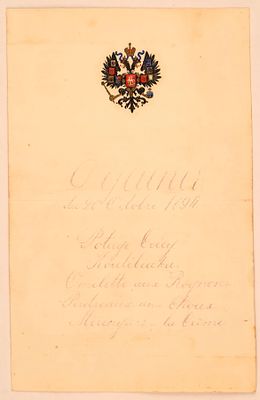 Déjeuner
du 20 Octobre 1894
Potage Crecy
Koulibiaka
Omelette aux Rognons
Perdreaux aux Choux
Meringues à la Crême